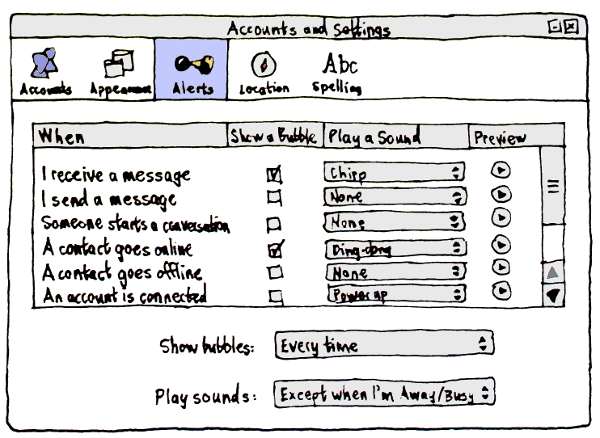 Accounts and Settings
Accounts Appearance Alerts Location Abc Spelling
When Show a Bubble Play a Sound Preview
I receive a message Chirp
I send a message None
Someone starts a conversation None
A contact goes online Ding-dong
A contact goes offline None
An account is connected Power up
Show bubbles: Every time
Play sounds: Except when I'm Away/Busy